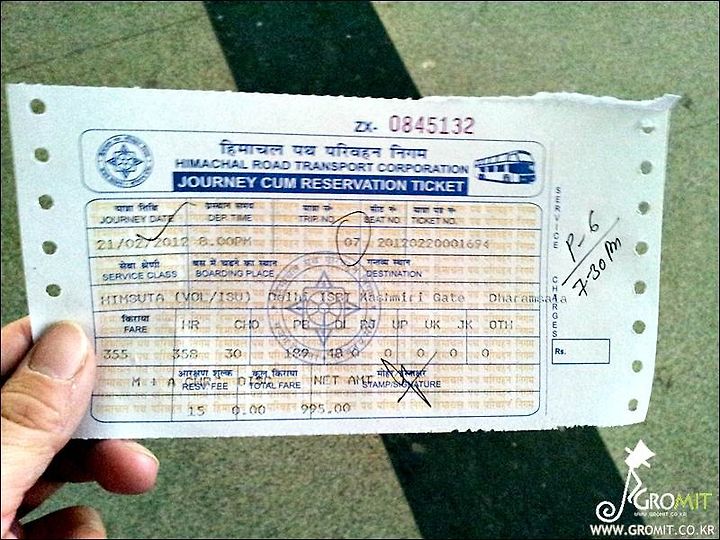 ZX- 0845132
हिमाचल पथ परिवहन निगम
HIMACHAL ROAD TRANSPORT CORPORATION
JOURNEY CUM RESERVATION TICKET
यात्रा तिथि प्रस्थान समय यात्रा सं० सीट सं० यात्रा पत्र सं०
JOURNEY DATE DEP. TIME TRIP NO. SEAT NO. TICKET NO.
21/02/2012 8.00PM 07 20120220001694
सेवा श्रेणी बस में चढ़ने का स्थान गन्तव्य स्थान
SERVICE CLASS BOARDING PLACE DESTINATION
HIMSUTA (VOL/ISU) Delhi ISBT Kashmiri Gate Dharamsala
किराया
FARE HR CHD PB DL RJ UP UK JK OTH
355 358 30 189 48 0 0 0 0 0
आरक्षण शुल्क कुल किराया मोहर
M + A CHR NET AMT
RESV. FEE TOTAL FARE STAMP/SIGNATURE
15 0.00 995.00
SERVICE CHARGES
Rs.
P-6
7-30 PM
GROMIT
WWW.GROMIT.CO.KR
WWW.GROMIT.CO.KR